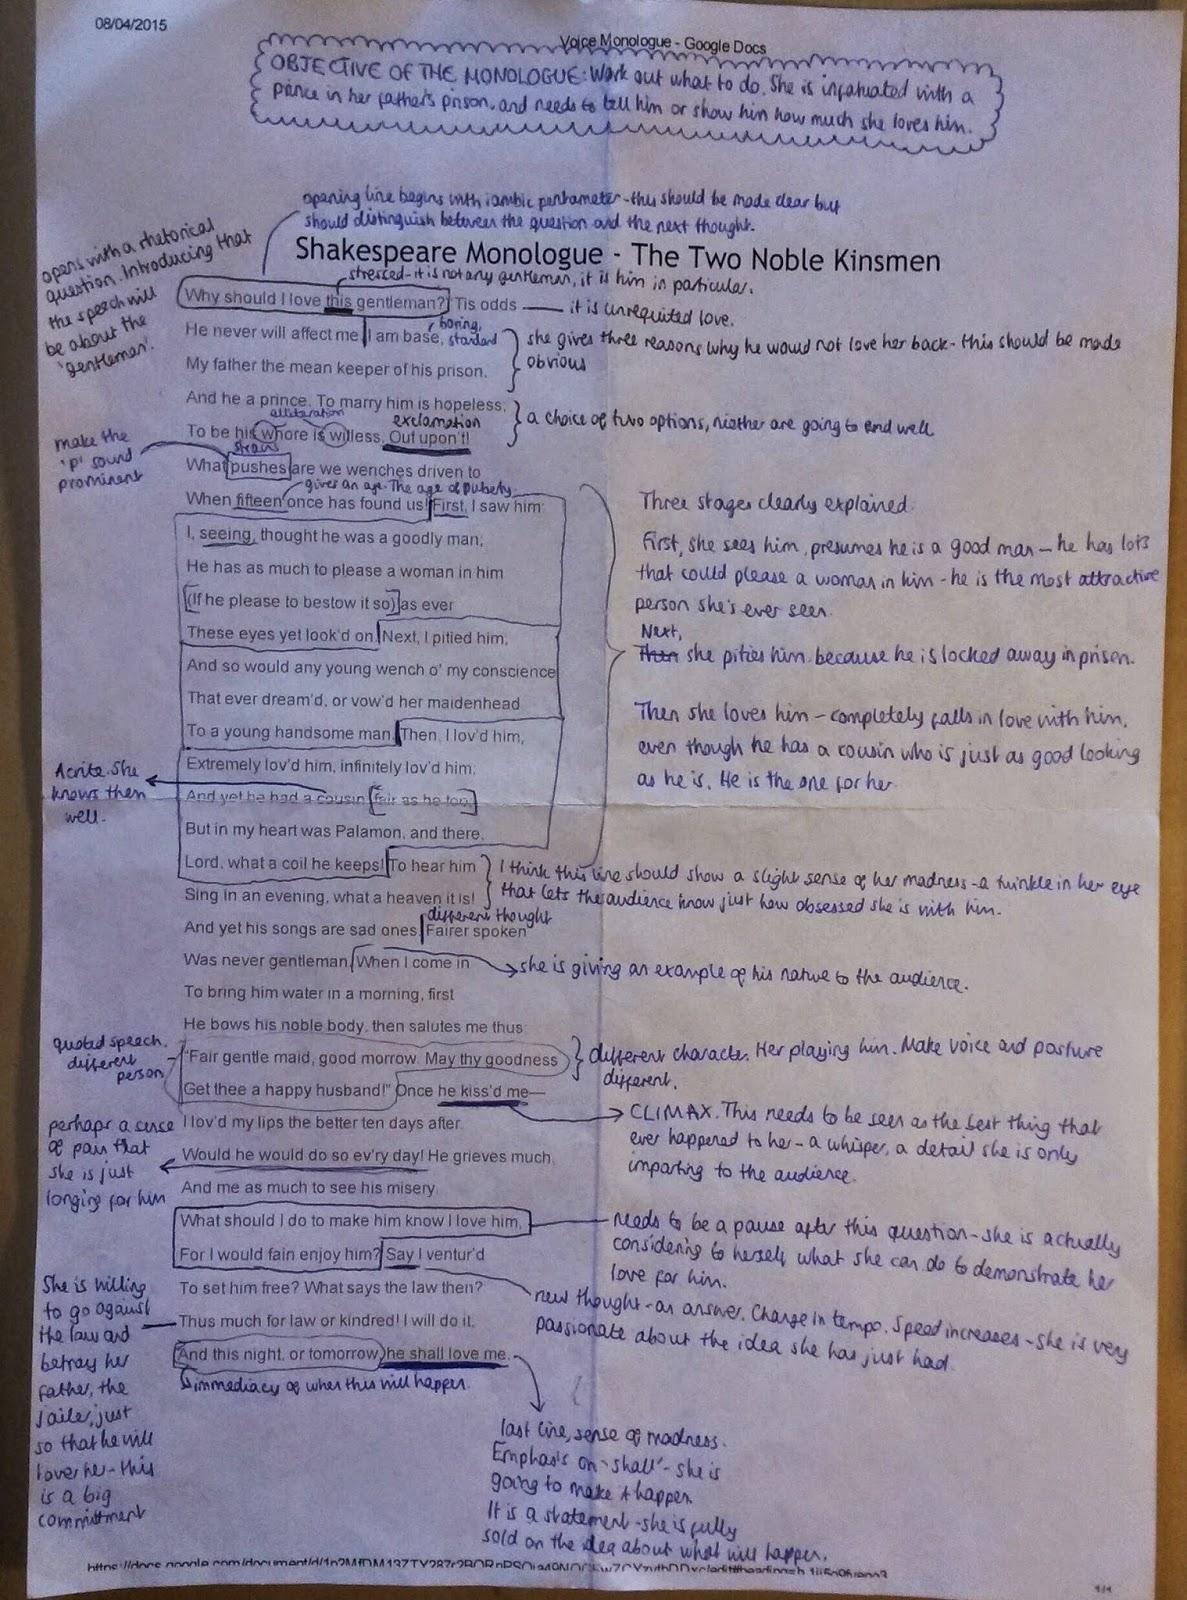 08/04/2015
Voice Monologue - Google Docs
OBJECTIVE OF THE MONOLOGUE: Work out what to do. She is infatuated with a
prince in her father's prison, and needs to tell him or show him how much she loves him.
opening line begins with iambic pentameter - this should be made clear but
should distinguish between the question and the next thought.
opens with a rhetorical
question. Introducing that
the speech will
be about the
'gentleman'.
Shakespeare Monologue - The Two Noble Kinsmen
stressed - it is not any gentleman, it is him in particular.
Why should I love this gentleman? Tis odds
it is unrequited love.
He never will affect me. I am base,
boring,
standard
she gives three reasons why he would not love her back - this should be made
obvious
My father the mean keeper of his prison,
And he a prince. To marry him is hopeless;
alliteration
exclamation
To be his whore is witless. Out upon't!
a choice of two options, niether are going to end well
make the
'p' sound
prominent
What pushes are we wenches driven to
gives an age. The age of puberty.
When fifteen once has found us! First, I saw him:
I, seeing, thought he was a goodly man;
He has as much to please a woman in him
(If he please to bestow it so) as ever
These eyes yet look'd on. Next, I pitied him,
And so would any young wench o' my conscience
That ever dream'd, or vow'd her maidenhead
To a young handsome man. Then, I lov'd him,
Extremely lov'd him, infinitely lov'd him;
And yet he had a cousin, fair as he too;
But in my heart was Palamon, and there,
Lord, what a coil he keeps! To hear him
Sing in an evening, what a heaven it is!
different thought
And yet his songs are sad ones. Fairer spoken
Was never gentleman. When I come in
To bring him water in a morning, first
He bows his noble body, then salutes me thus:
"Fair gentle maid, good morrow. May thy goodness
Get thee a happy husband!" Once he kiss'd me—
I lov'd my lips the better ten days after.
Would he would do so ev'ry day! He grieves much,
And me as much to see his misery.
What should I do to make him know I love him,
For I would fain enjoy him? Say I ventur'd
To set him free? What says the law then?
Thus much for law or kindred! I will do it,
And this night, or tomorrow, he shall love me.
Three stages clearly explained.
First, she sees him, presumes he is a good man - he has lots
that could please a woman in him - he is the most attractive
person she's ever seen.
Next,
Then she pities him because he is locked away in prison.
Then she loves him - completely falls in love with him,
even though he has a cousin who is just as good looking
as he is. He is the one for her.
She
knows them
well.
I think this line should show a slight sense of her madness - a twinkle in her eye
that lets the audience know just how obsessed she is with him.
she is giving an example of his nature to the audience.
quoted speech,
different
person
different character. Her playing him. Make voice and posture
different.
CLIMAX. This needs to be seen as the best thing that
ever happened to her - a whisper, a detail she is only
imparting to the audience.
perhaps a sense
of pain that
she is just
longing for him
needs to be a pause after this question - she is actually
considering to herself what she can do to demonstrate her
love for him.
new thought - an answer. Change in tempo. Speed increases - she is very
passionate about the idea she has just had.
She is willing
to go against
the law and
betray her
father, the
jailer, just
so that he will
love her - this
is a big
commitment
immediacy of when this will happen.
last line, sense of madness.
Emphasis on 'shall' - she is
going to make it happen.
It is a statement - she is fully
sold on the idea about what will happen.